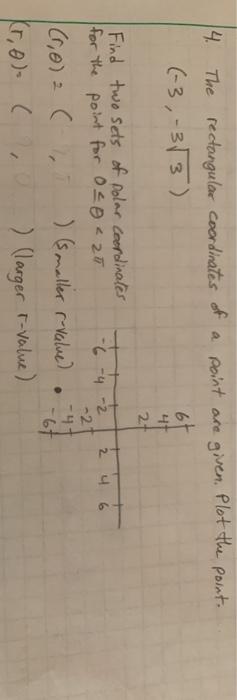 4. The rectangular coordinates of a point are given. Plot the point.
(-3, -3√3)
6
4
2
-6 -4 -2 2 4 6
-2
-4
-6
Find two sets of polar coordinates
for the point for 0 ≤ θ < 2π
(r, θ) = ( , ) (smaller r-value)
(r, θ) = ( , ) (larger r-value)